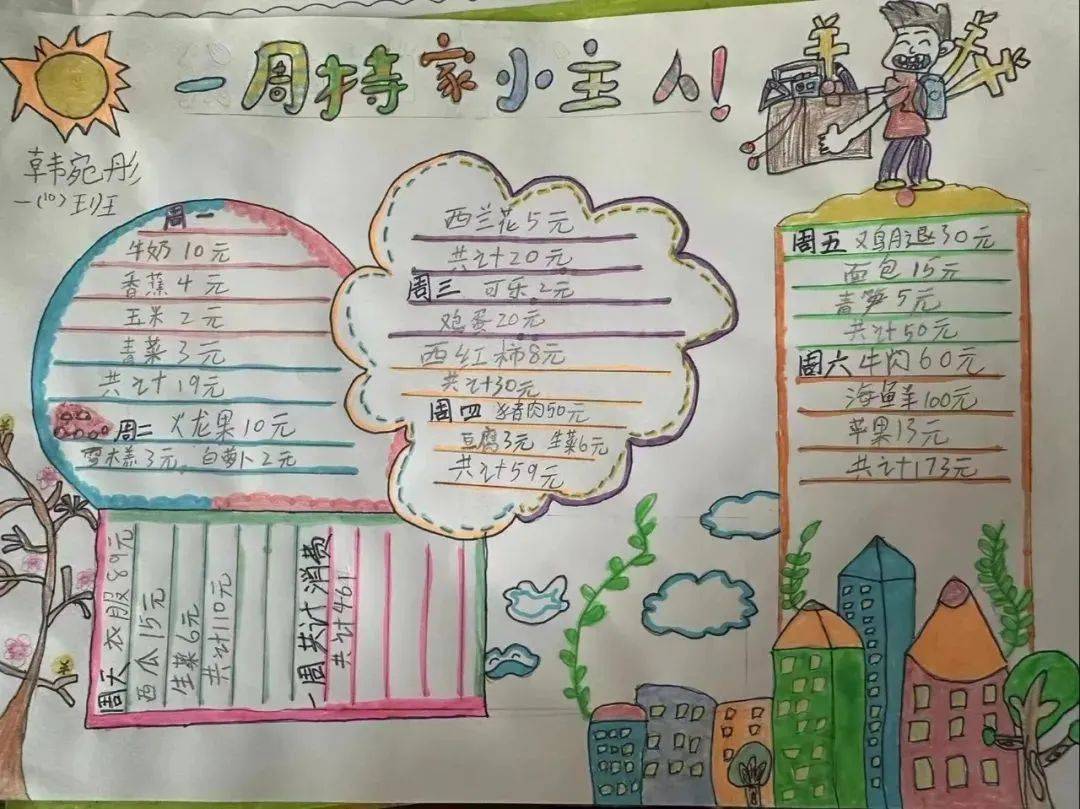 一周持家小主人!
韩宛彤
一(10)班
周一
牛奶10元
香蕉4元
玉米2元
青菜3元
共计19元
周二 火龙果10元
白萝卜2元
西兰花5元
共计20元
周三 可乐2元
鸡蛋20元
西红柿8元
共计30元
周四 猪肉50元
豆腐3元 生菜6元
共计59元
周五 鸡腿30元
面包15元
青笋5元
共计50元
周六 牛肉60元
海鲜100元
苹果13元
共计173元
周天 衣服89元
西瓜15元
生菜6元
共计110元
一周共计消费
共计461